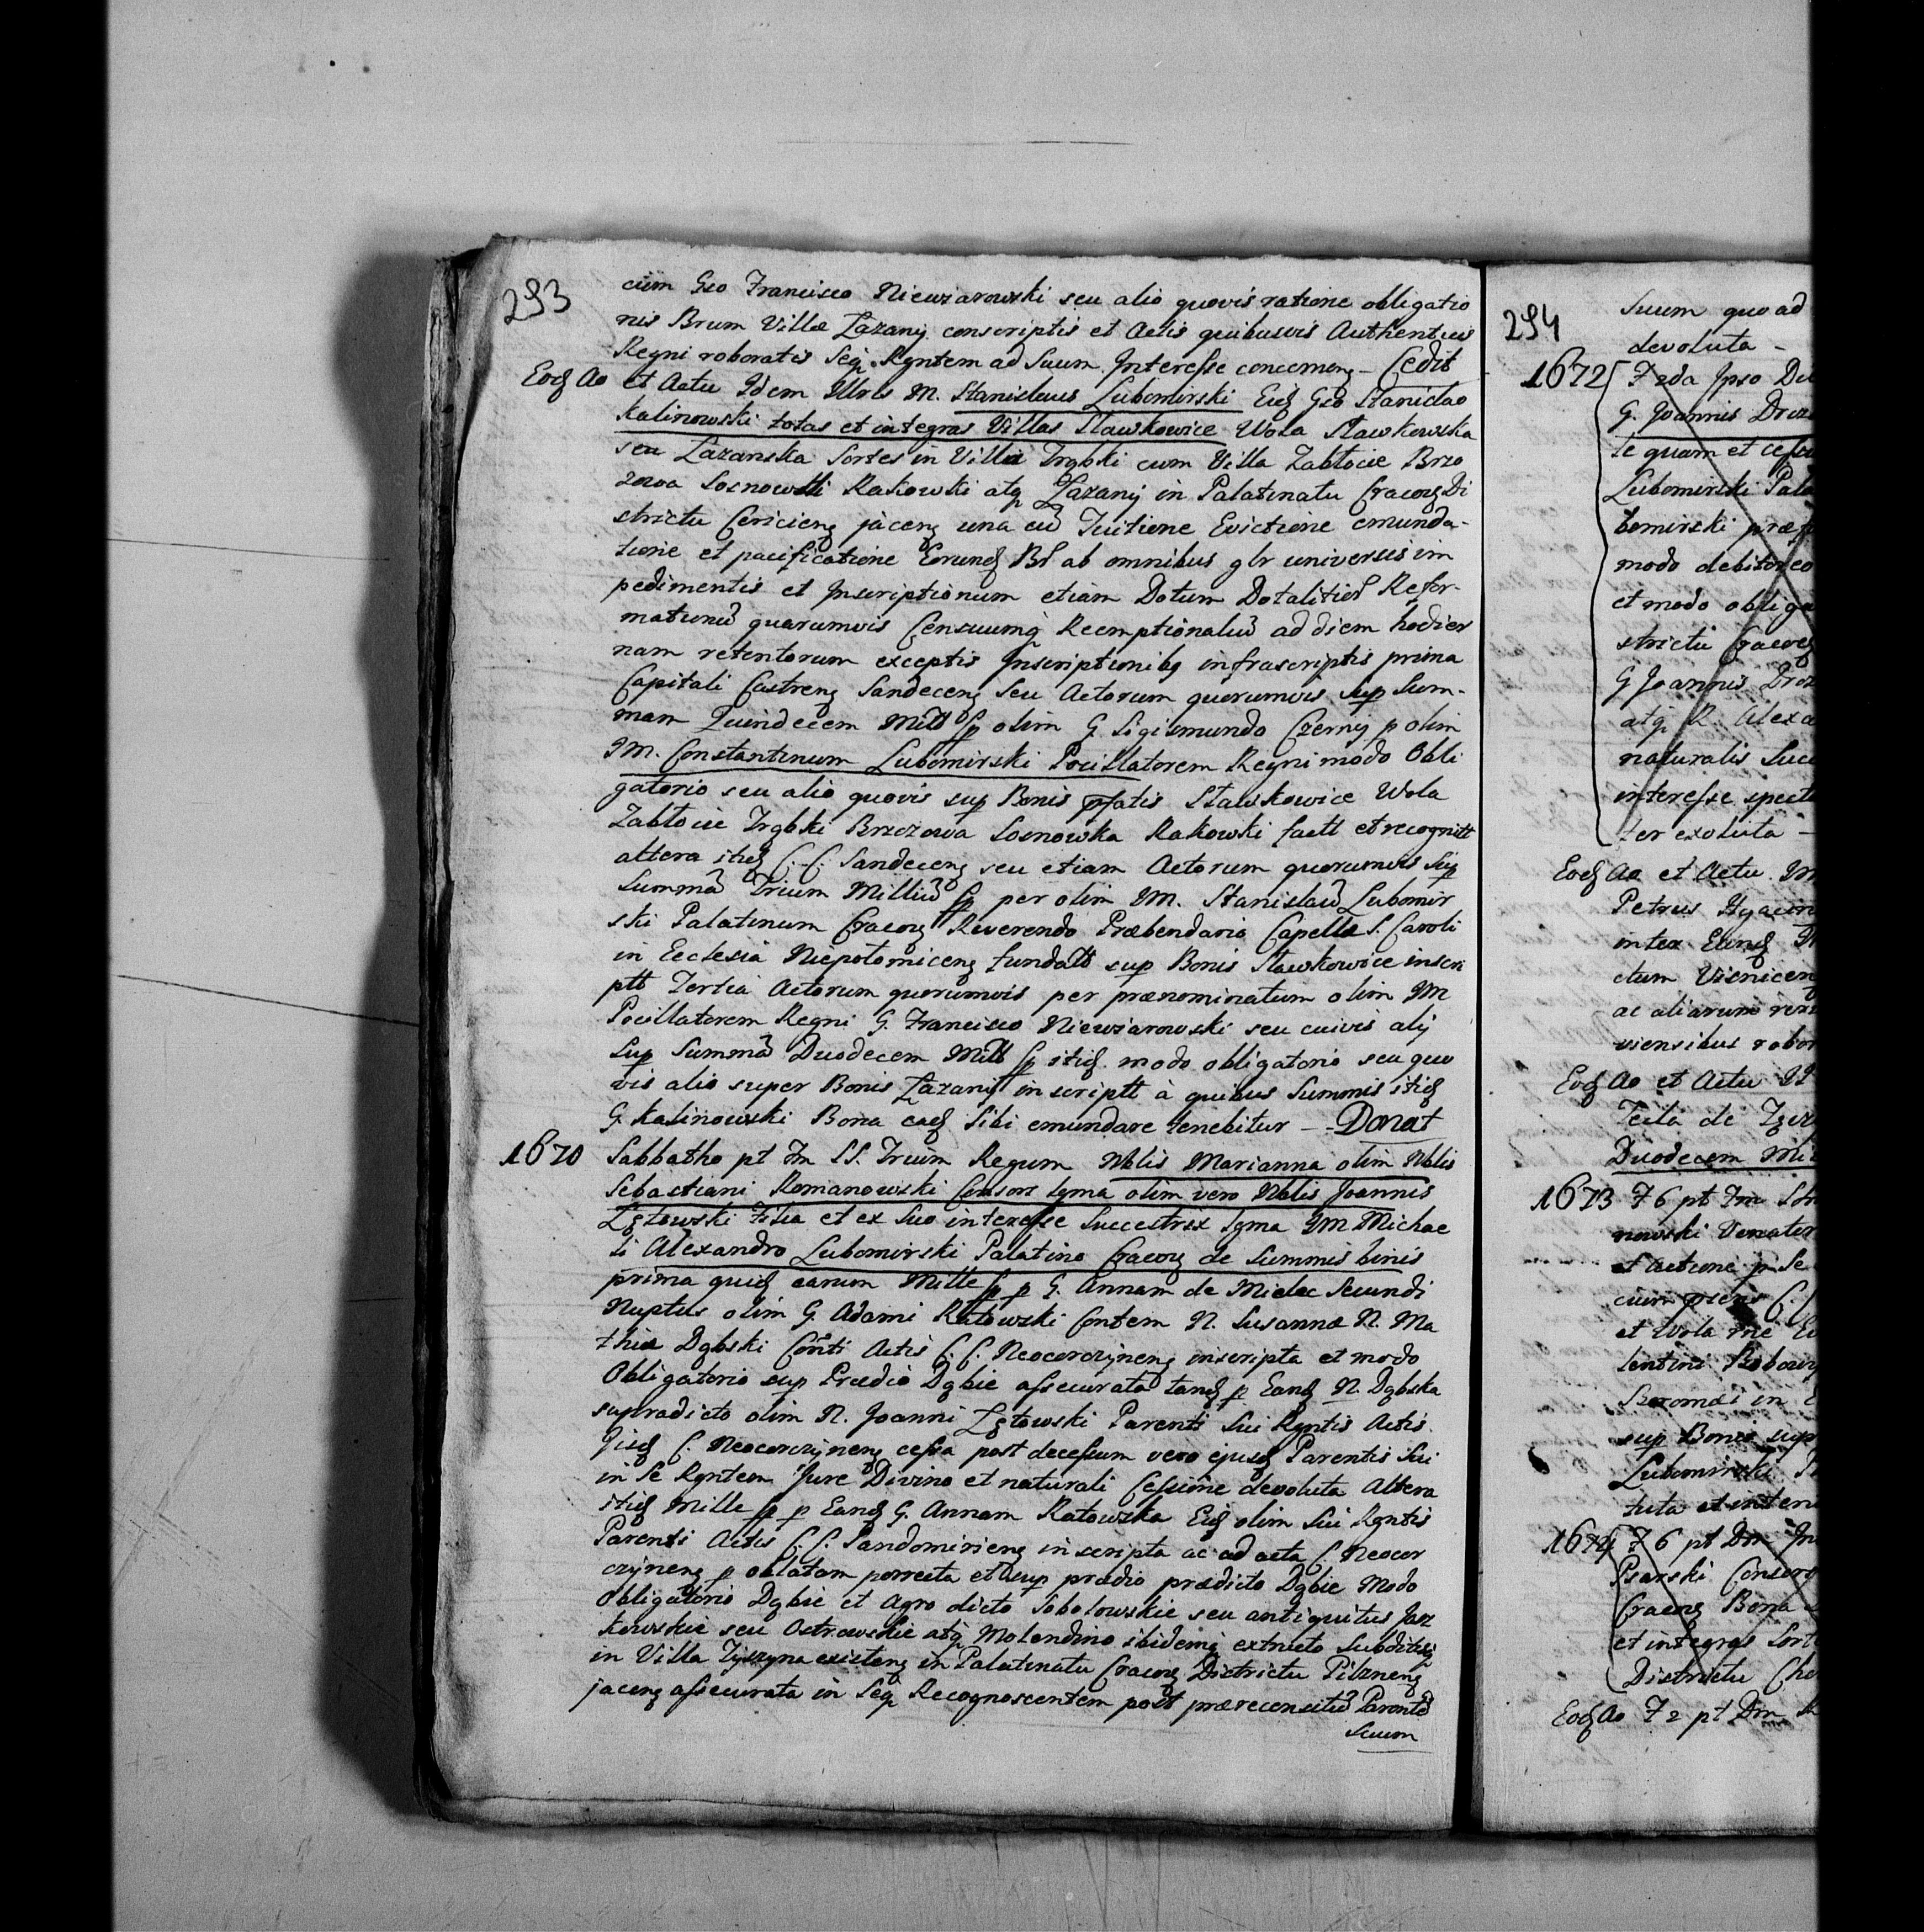 293
cum Gso Francisco Niewiarowski seu alio quovis ratione obligatio
nis Brum Villæ Zazany conscriptis et Actis quibusvis Authenticis
Regni roboratis Seq. Rgntem ad Suum Interesse concerneng – Cedit
Eod Ao et Actu Idem Illris M. Stanislaus Lubomirski Eid Gso Stanislao
Kalinowski totas et integras Villas Stawkowice Wola Stawkowska
seu Zazanska Sortes in Villa Trąbki cum Villa Zabłocie Brzo
zowa Sosnowski Rakowski atq Zazany in Palatinatu Cracoq Di
strictu Cericieng jaceng una cū Tuitione Evictione emunda-
tione et pacificatione Eorund Br ab omnibus glr universis im
pedimentis et Inscriptionum etiam Dotum Dotalitior Refor-
mationū quarumvis Censuumq Reemptionaliū ad diem hodier
nam retentorum exceptis Inscriptionibq infrascriptis prima
Capitali Castreng Sandeceng Seu Actorum quorumvis Sup Sum-
mam Quindecem Mill fp olim G Sigismundo Czerny p olim
IM. Constantinum Lubomirski Pocillatorem Regni modo Obli
gatorio seu alio quovis sup Bonis pfatis Stawkowice Wola
Zabłocie Trąbki Brzozowa Sosnowka Rakowski factt et recognitt
altera itid C. C. Sandeceng seu etiam Actorum quorumvis Sup
Summā Trium Milliū fp per olim IM. Stanislaū Lubomir
ski Palatinum Cracoq Reverendo Præbendario Capellæ S. Caroli
in Ecclesia Niepotomiceng fundatt sup Bonis Stawkowice inscri
ptt Tertia Actorum quorumvis per prænominatum olim IM
Pocillatorem Regni G. Francisco Niewiarowski seu cuivis alij
Sup Summā Duodecem Mill fp itid modo obligatorio seu quo
vis alio super Bonis Zazany inscriptt à quibus Summis itid
G. Kalinowski Bona ead Sibi emundare tenebitur – Donat
1670 Sabbatho pt Fm SS. Trium Regum Nblis Marianna olim Nblis
Sebastiani Romanowski Consors lgma olim vero Nblis Joannis
Zętowski Filia et ex Suo interesse Succestrix lgma IM Michae
li Alexandro Lubomirski Palatino Cracoq de Summis binis
prima quid earum Mille fp p G. Annam de Mielec Secundi
Nuptus olim G. Adami Ratowski Contem N. Susannæ N. Ma
thiæ Dąbski Conti Actis C. C. Neocorczyneng inscripta et modo
Obligatorio sup Prædio Dąbie assecurata tand p Eand N. Dąbska
supradicto olim N. Joanni Zętowski Parenti Sui Rgntis Actis
Iisd C. Neocorczyneng cessa post decessum vero ejusd Parentis Sui
in Se Rgntem Jure Divino et naturali Cessione devoluta Altera
itid Mille fp p Eand G. Annam Ratowska Eid olim Sui Rgntis
Parenti Actis C. C. Sandomirieng inscripta ac ad acta C. Neocor
czyneng p oblatam porrecta et sup prædio prædicto Dąbie Modo
Obligatorio Dąbie et Agro dicto Sobolowskie seu antiquitus Jarz
kowskie seu Ostrowskie atq Molendino ibidemq extructo Subditisq
in Villa Zyszyna existeng in Palatinatu Cracoq Districtu Pilzneng
jaceng assecurata in Seq Recognoscentem post præreconsitū Parentē
Suum
294
Suum quo ad
devoluta –
1672 F 2da Ipso Di
G. Joannis Droz
te quam et cessa
Lubomirski Pala
bomirski præf
modo debitoreo
et modo obliga
strictu Cracoq
G Joannis Droz
atq R. Alexa
naturalis Succ
interesse spect
ter exoluta –
Eod Ao et Actu IM
Petrus Hyacin
inter Eund
ctum Visnicen
ac aliarum rer
viensibus robor
Eod Ao et Actu
Tecla de
Duodecem Mil
1673 F 6 pt Fm
nowski Venator
et Actione p Se
cum
et Wola
lentini
Seromdi in
sup Bonis sup
Lubomirski
tuta et inten
1674 F 6 pt Dm
Psarski Consors
Cracoq Bona
et integras Sort
Districtu
Eod Ao F 2 pt Dm